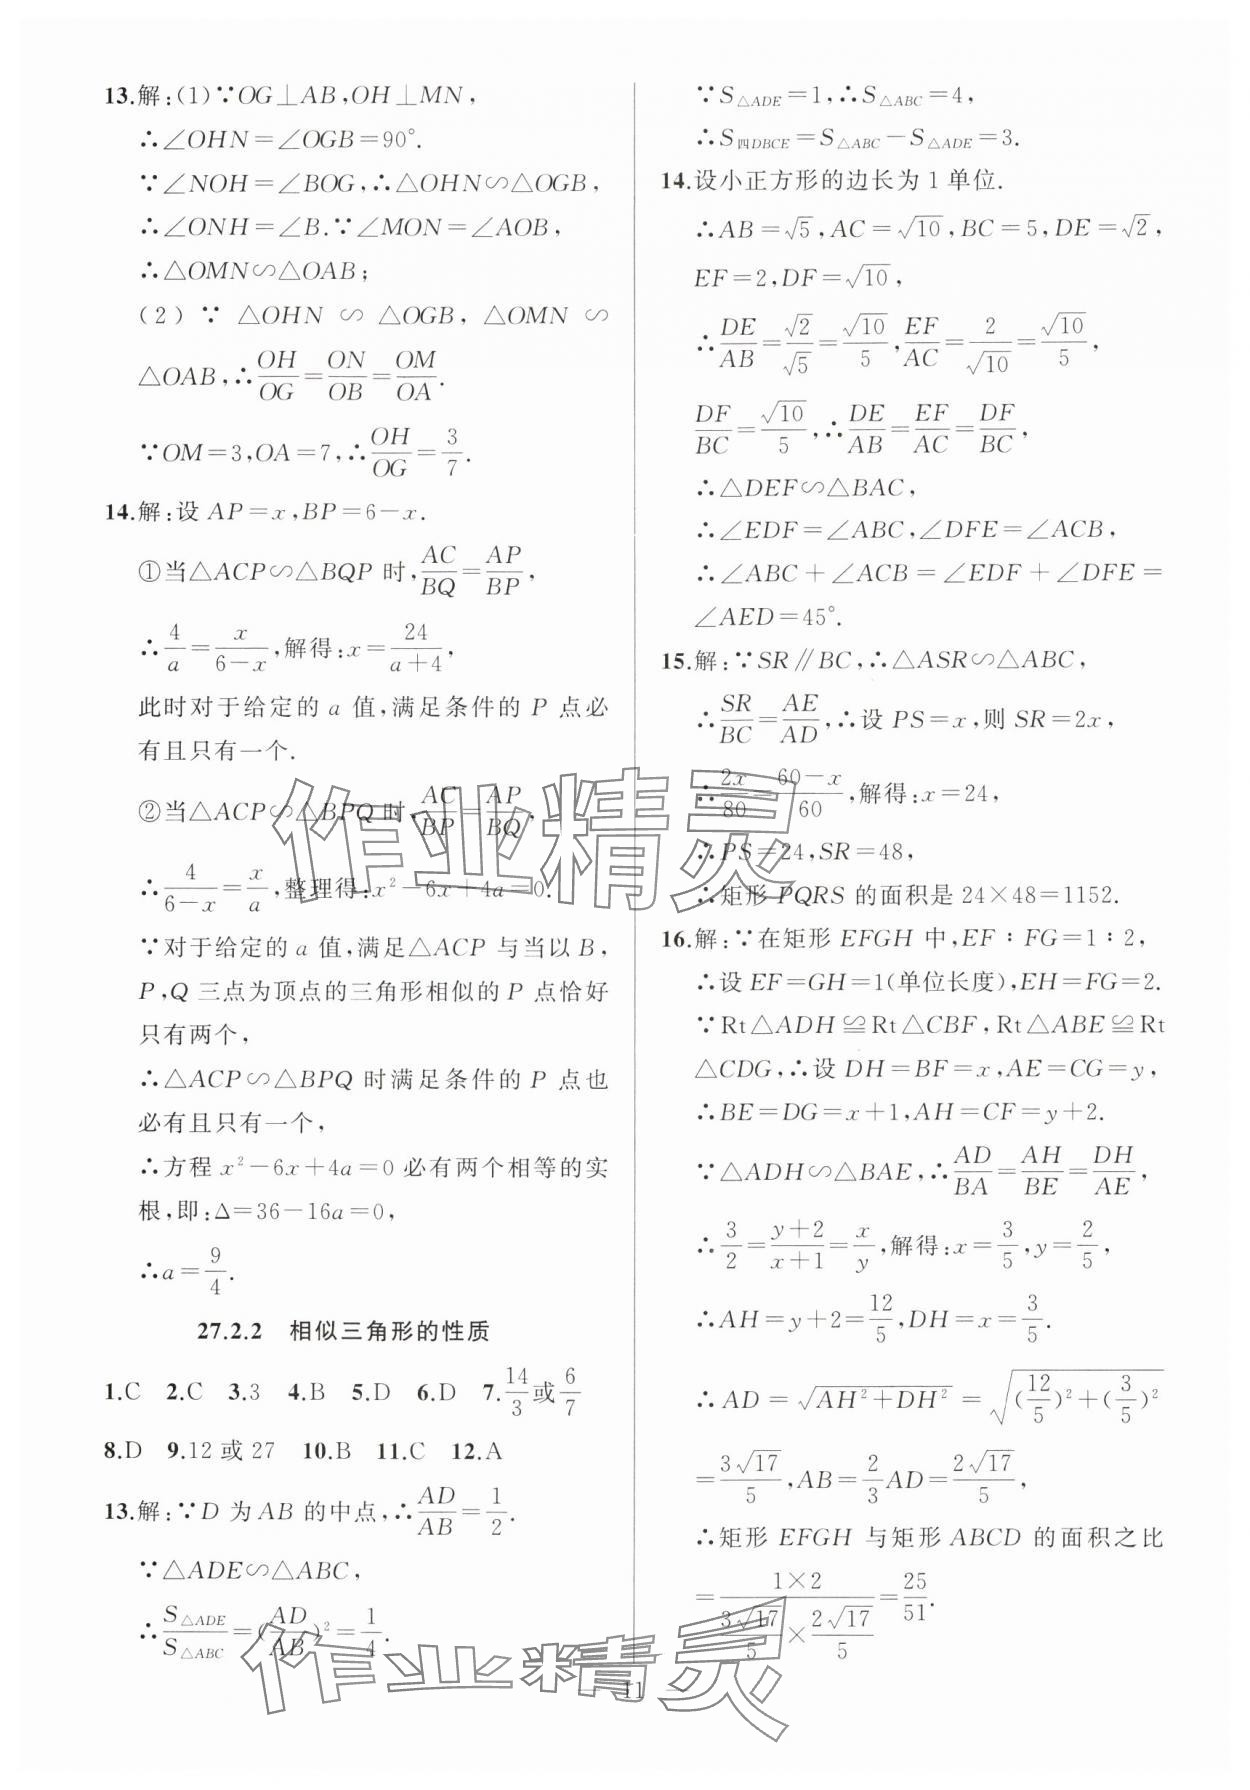 13.解:(1)∵OG⊥AB,OH⊥MN,
∴∠OHN=∠OGB=90°.
∵∠NOH=∠BOG,∴△OHN∽△OGB,
∴∠ONH=∠B.∵∠MON=∠AOB,
∴△OMN∽△OAB;
(2)∵△OHN∽△OGB,△OMN∽
△OAB,∴OH/OG=ON/OB=OM/OA.
∵OM=3,OA=7,∴OH/OG=3/7.
14.解:设 AP=x,BP=6-x.
①当△ACP∽△BQP 时,AC/BQ=AP/BP,
∴4/a=x/(6-x),解得:x=24/(a+4),
此时对于给定的 a 值,满足条件的 P 点必
有且只有一个.
②当△ACP∽△BPQ 时,AC/BP=AP/BQ,
∴4/(6-x)=x/a,整理得:x²-6x+4a=0.
∵对于给定的 a 值,满足△ACP 与当以 B,
P,Q 三点为顶点的三角形相似的 P 点恰好
只有两个,
∴△ACP∽△BPQ 时满足条件的 P 点也
必有且只有一个,
∴方程 x²-6x+4a=0 必有两个相等的实
根,即:Δ=36-16a=0,
∴a=9/4.
27.2.2 相似三角形的性质
1.C 2.C 3.3 4.B 5.D 6.D 7.14/3或6/7
8.D 9.12 或 27 10.B 11.C 12.A
13.解:∵D 为 AB 的中点,∴AD/AB=1/2.
∵△ADE∽△ABC,
∴S△ADE/S△ABC=(AD/AB)²=1/4.
∵S△ADE=1,∴S△ABC=4,
∴S四DBCE=S△ABC-S△ADE=3.
14.设小正方形的边长为 1 单位.
∴AB=√5,AC=√10,BC=5,DE=√2,
EF=2,DF=√10,
∴DE/AB=√2/√5=√10/5,EF/AC=2/√10=√10/5,
DF/BC=√10/5,∴DE/AB=EF/AC=DF/BC,
∴△DEF∽△BAC,
∴∠EDF=∠ABC,∠DFE=∠ACB,
∴∠ABC+∠ACB=∠EDF+∠DFE=
∠AED=45°.
15.解:∵SR∥BC,∴△ASR∽△ABC,
∴SR/BC=AE/AD,∴设 PS=x,则 SR=2x,
∴2x/80=(60-x)/60,解得:x=24,
∴PS=24,SR=48,
∴矩形 PQRS 的面积是 24×48=1152.
16.解:∵在矩形 EFGH 中,EF∶FG=1∶2,
∴设 EF=GH=1(单位长度),EH=FG=2.
∵Rt△ADH≌Rt△CBF,Rt△ABE≌Rt
△CDG,∴设 DH=BF=x,AE=CG=y,
∴BE=DG=x+1,AH=CF=y+2.
∵△ADH∽△BAE,∴AD/BA=AH/BE=DH/AE,
∴3/2=(y+2)/(x+1)=x/y,解得:x=3/5,y=2/5,
∴AH=y+2=12/5,DH=x=3/5.
∴AD=√(AH²+DH²)=√((12/5)²+(3/5)²)
=3√17/5,AB=2/3AD=2√17/5,
∴矩形 EFGH 与矩形 ABCD 的面积之比
=(1×2)/(3√17/5×2√17/5)=25/51.
— 11 —
作业精灵
作业精灵